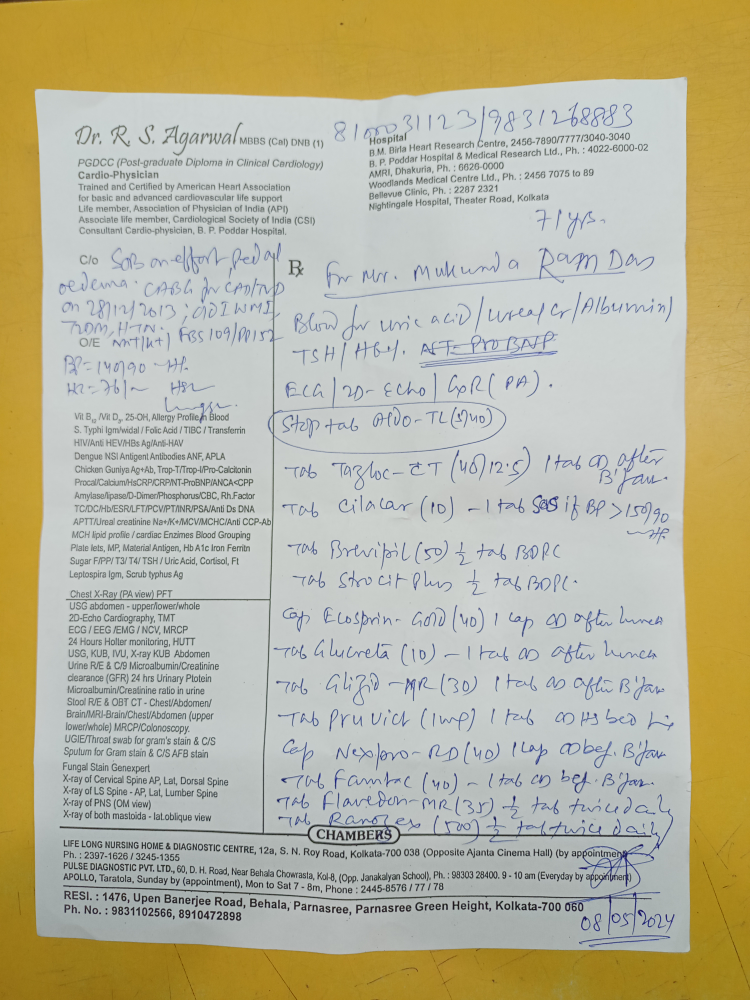 8100031123/9831268883
Dr. R. S. Agarwal MBBS (Cal) DNB (1)
PGDCC (Post-graduate Diploma in Clinical Cardiology)
Cardio-Physician
Trained and Certified by American Heart Association
for basic and advanced cardiovascular life support
Life member, Association of Physician of India (API)
Associate life member, Cardiological Society of India (CSI)
Consultant Cardio-physician, B. P. Poddar Hospital.
Hospital
B.M. Birla Heart Research Centre, 2456-7890/7777/3040-3040
B. P. Poddar Hospital & Medical Research Ltd., Ph. : 4022-6000-02
AMRI, Dhakuria, Ph. : 6626-0000
Woodlands Medical Centre Ltd., Ph. : 2456 7075 to 89
Bellevue Clinic, Ph. : 2287 2321
Nightingale Hospital, Theater Road, Kolkata
71 yrs.
C/o SOB on effort, Pedal
oedema. CABG for CAD/TVD
on 28/12/2013; OLD IWMI
T2DM, HTN. FBS 109/PP 152
O/E
BP = 140/90
HR = 76/m HS
Lungs
Vit B12 /Vit D3, 25-OH, Allergy Profile in Blood
S. Typhi Igm/widal / Folic Acid / TIBC / Transferrin
HIV/Anti HEV/HBs Ag/Anti-HAV
Dengue NSI Antigent Antibodies ANF, APLA
Chicken Guniya Ag+Ab, Trop-T/Trop-I/Pro-Calcitonin
Procal/Calcium/HsCRP/CRP/NT-ProBNP/ANCA+CPP
Amylase/lipase/D-Dimer/Phosphorus/CBC, Rh.Factor
TC/DC/Hb/ESR/LFT/PCV/PT/INR/PSA/Anti Ds DNA
APTT/Ureal creatinine Na+/K+/MCV/MCHC/Anti CCP-Ab
MCH lipid profile / cardiac Enzimes Blood Grouping
Plate lets, MP, Material Antigen, Hb A1c Iron Ferritn
Sugar F/PP/ T3/ T4/ TSH / Uric Acid, Cortisol, Ft
Leptospira Igm, Scrub typhus Ag
Chest X-Ray (PA view) PFT
USG abdomen - upper/lower/whole
2D-Echo Cardiography, TMT
ECG / EEG /EMG / NCV, MRCP
24 Hours Holter monitoring, HUTT
USG, KUB, IVU, X-ray KUB Abdomen
Urine R/E & C/9 Microalbumin/Creatinine
clearance (GFR) 24 hrs Urinary Ptotein
Microalbumin/Creatinine ratio in urine
Stool R/E & OBT CT - Chest/Abdomen/
Brain/MRI-Brain/Chest/Abdomen (upper
lower/whole) MRCP/Colonoscopy.
UGIE/Throat swab for gram's stain & C/S
Sputum for Gram stain & C/S AFB stain
Fungal Stain Genexpert
X-ray of Cervical Spine AP, Lat, Dorsal Spine
X-ray of LS Spine - AP, Lat, Lumber Spine
X-ray of PNS (OM view)
X-ray of both mastoida - lat.oblique view
Rx For Mr. Mukunda Ram Das
Blood for uric acid/urea/cr/Albumin/
TSH/Hb%. NT-PRO BNP
ECG/2D-Echo/CXR (PA).
Stop tab Aldo-TL (5/40)
Tab Tazloc-CT (40/12.5) 1 tab OD after B'fast.
Tab Cilacar (10) - 1 tab SOS if BP > 150/90
Tab Brevipil (50) ½ tab BDPC
Tab Strocit Plus ½ tab BDPC.
Cap Ecosprin-Gold (40) 1 cap OD after lunch
Tab Glucreta (10) - 1 tab OD after lunch
Tab Glizid-MR (30) 1 tab OD after B'fast
Tab Pruvict (1mg) 1 tab OD HS bed time
Cap Nexpro-RD (40) 1 cap OD bef. B'fast
Tab Famtac (40) - 1 tab OD bef. B'fast.
Tab Flavedon-MR (35) ½ tab twice daily
Tab Ranozex (500) ½ tab twice daily
CHAMBERS
LIFE LONG NURSING HOME & DIAGNOSTIC CENTRE, 12a, S. N. Roy Road, Kolkata-700 038 (Opposite Ajanta Cinema Hall) (by appointment)
Ph. : 2397-1626 / 3245-1355
PULSE DIAGNOSTIC PVT. LTD., 60, D. H. Road, Near Behala Chowrasta, Kol-8, (Opp. Janakalyan School), Ph. : 98303 28400. 9 - 10 am (Everyday by appointment)
APOLLO, Taratola, Sunday by (appointment), Mon to Sat 7 - 8m, Phone : 2445-8576 / 77 / 78
RESI. : 1476, Upen Banerjee Road, Behala, Parnasree, Parnasree Green Height, Kolkata-700 060
Ph. No. : 9831102566, 8910472898
08/05/2024